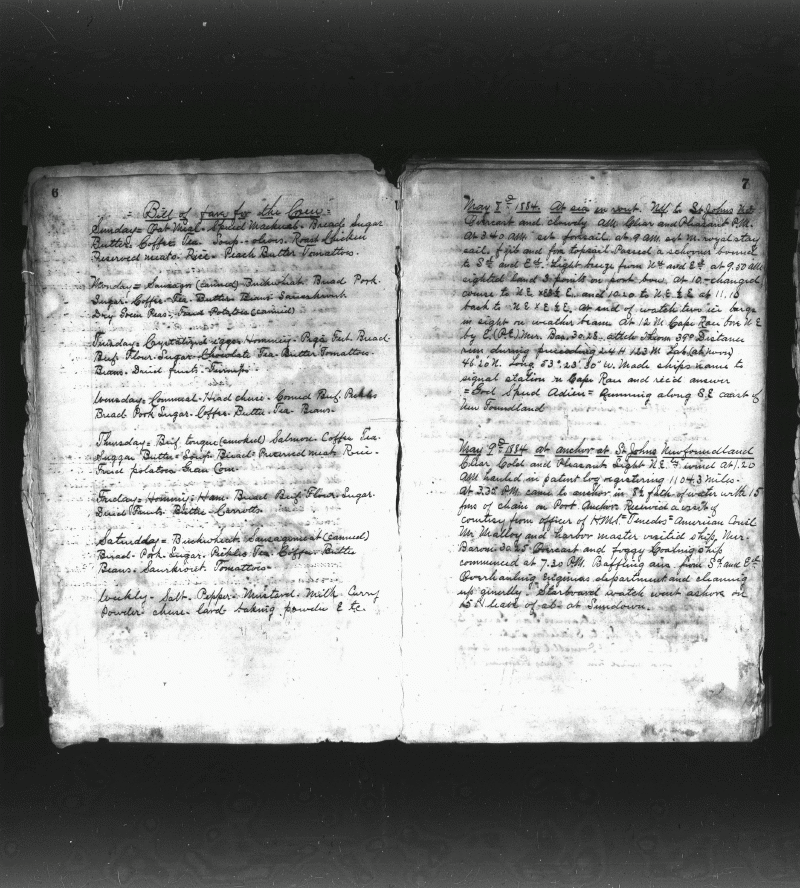 6
Bill of fare for the Crew
Sunday = Oat Meal - Spiced Mackeral - Bread Sugar
Butter - Coffee Tea - Soup - Roast Chicken
Preserved meats - Rice - Peach Butter Tomattos -
Monday = Sausages (canned) Buckwheat - Bread Pork -
Sugar - Coffee - Tea - Butter Beans Sauerkraut
Dry Peas - Potatoes (canned)
Tuesday = eggs - Hominy - Feet - Bread -
Beef Flour - Sugar - Chocolate Tea - Butter Tomattos -
Beans - Dried fruits - Turnips
Wensday = Cornmeal - Head cheese - Corned Beef - Pickles
Bread Pork Sugar - Coffee - Butter - Tea - Beans -
Thursday = Beef tongue (smoked) Salmon - Coffee Tea -
Suggar Butter - Soup - Bread - Preserved meat Rice -
potatoes Green Corn -
Friday = Hominy - Ham - Bread Beef - Flour - Sugar -
Dried Fruits - Butter - Carrotts
Saturday = Buckwheat - Sausagemeat (canned)
Bread - Pork - Sugar - Pickles Tea - Coffee - Butter
Beans - Saurkrout - Tomattoes -
Weekly - Salt - Pepper - Mustard - Milk - Curry
Powder - cheese - lard baking powder & tc
7
May 1884 At sea en rout. to St Johns
Overcast and cloudy AM. Clear and Pleasant P.M.
At 3.40 AM set foresail. at 9 AM set m. royal stay
sail. f jib and fore topsail Passed a schooner bound
to Sd and Ed. Light breeze from Nd and Ed at 9.50 AM
sighted land 3 points on port bow. At 10 - changed
course to N.E. E. and 10.20 to N.E. ½ E at 11.10
back to N.E. ½ E. At end of watch two ice bergs
in sight on weather beam. At 12 M Cape Race bore N E
by E. (P.C.) Mer. Bar. 30.25. Ther. 39° Distance
run during preceding 24 H 123 M Lat. (at noon)
46° 20' N. Long 53° 23' 30" W. Made ships name to
signal station on Cape Race and recd answer
= God Speed Adieu = Running along S.E coast of
New Foundland
May 9d 1884 at anchor at St Johns Newfoundland
Clear Cold and Pleasant. Light N.E. wind At 1.20
AM hauled in patent log registering 1104.3 miles -
At PM came to anchor in fath of water with 15
fms of chain on Port Anchor Received a visit of
courtesy from officer of H.M.S = Tenedos = American Consl
Mr Malloy and Harbor master visited ship. Mer.
Barom 30.25 Overcast and foggy Coaling ship
commenced at 7.30 PM. Baffling airs from Sd and Ed
Overhauling Engineers department and cleaning
up ginerlly. Starboard watch went ashore on
leave of abs at Sundown.